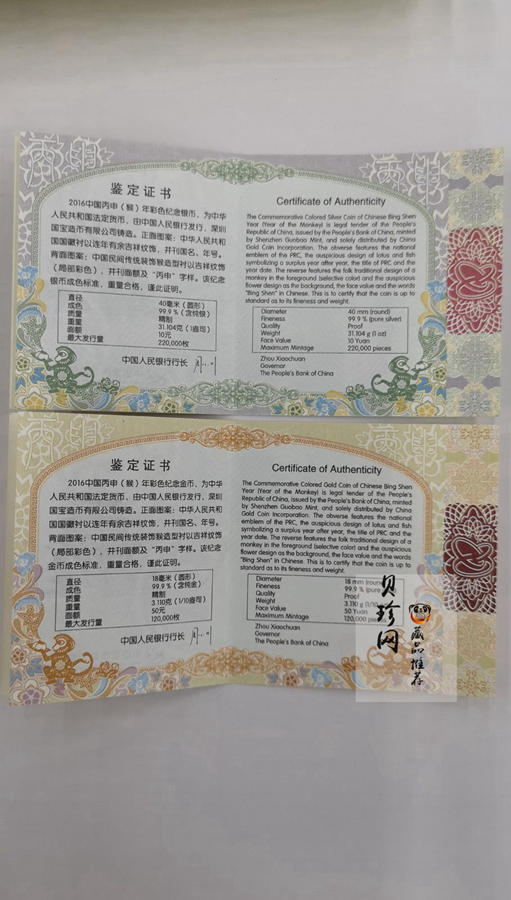 鉴定证书
2016中国丙申（猴）年彩色纪念银币，为中华
人民共和国法定货币，由中国人民银行发行，深圳
国宝造币有限公司铸造。正面图案：中华人民共和
国国徽衬以连年有余吉祥纹饰，并刊国名、年号。
背面图案：中国民间传统装饰猴造型衬以吉祥纹饰
（局部彩色），并刊面额及“丙申”字样。该纪念
银币成色标准，重量合格，谨此证明。
直径 40毫米（圆形）
成色 99.9％（含纯银）
质量 精制
重量 31.104克（1盎司）
面额 10元
最大发行量 220,000枚
中国人民银行行长
Certificate of Authenticity
The Commemorative Colored Silver Coin of Chinese Bing Shen
Year (Year of the Monkey) is legal tender of the People's
Republic of China, issued by the People's Bank of China, minted
by Shenzhen Guobao Mint, and solely distributed by China
Gold Coin Incorporation. The obverse features the national
emblem of the PRC, the auspicious design of lotus and fish
symbolizing a surplus year after year, the title of PRC and the
year date. The reverse features the folk traditional design of a
monkey in the foreground (selective color) and the auspicious
flower design as the background, the face value and the words
"Bing Shen" in Chinese. This is to certify that the coin is up to
standard as to its fineness and weight.
Diameter 40 mm (round)
Fineness 99.9 % (pure silver)
Quality Proof
Weight 31.104 g (1 oz)
Face Value 10 Yuan
Maximum Mintage 220,000 pieces
Zhou Xiaochuan
Governor
The People's Bank of China
鉴定证书
2016中国丙申（猴）年彩色纪念金币，为中华
人民共和国法定货币，由中国人民银行发行，深圳
国宝造币有限公司铸造。正面图案：中华人民共和
国国徽衬以连年有余吉祥纹饰，并刊国名、年号。
背面图案：中国民间传统装饰猴造型衬以吉祥纹饰
（局部彩色），并刊面额及“丙申”字样。该纪念
金币成色标准，重量合格，谨此证明。
直径 18毫米（圆形）
成色 99.9％（含纯金）
质量 精制
重量 3.110克（1/10盎司）
面额 50元
最大发行量 120,000枚
中国人民银行行长
Certificate of Authenticity
The Commemorative Colored Gold Coin of Chinese Bing Shen
Year (Year of the Monkey) is legal tender of the People's
Republic of China, issued by the People's Bank of China, minted
by Shenzhen Guobao Mint, and solely distributed by China
Gold Coin Incorporation. The obverse features the national
emblem of the PRC, the auspicious design of lotus and fish
symbolizing a surplus year after year, the title of PRC and the
year date. The reverse features the folk traditional design of a
monkey in the foreground (selective color) and the auspicious
flower design as the background, the face value and the words
"Bing Shen" in Chinese. This is to certify that the coin is up to
standard as to its fineness and weight.
Diameter 18 mm (round)
Fineness 99.9 % (pure
Quality Proof
Weight 3.110 g (1/10
Face Value 50 Yuan
Maximum Mintage 120,000 pieces
Zhou Xiaochuan
Governor
The People's Bank of China
贝珍网
藏品推荐